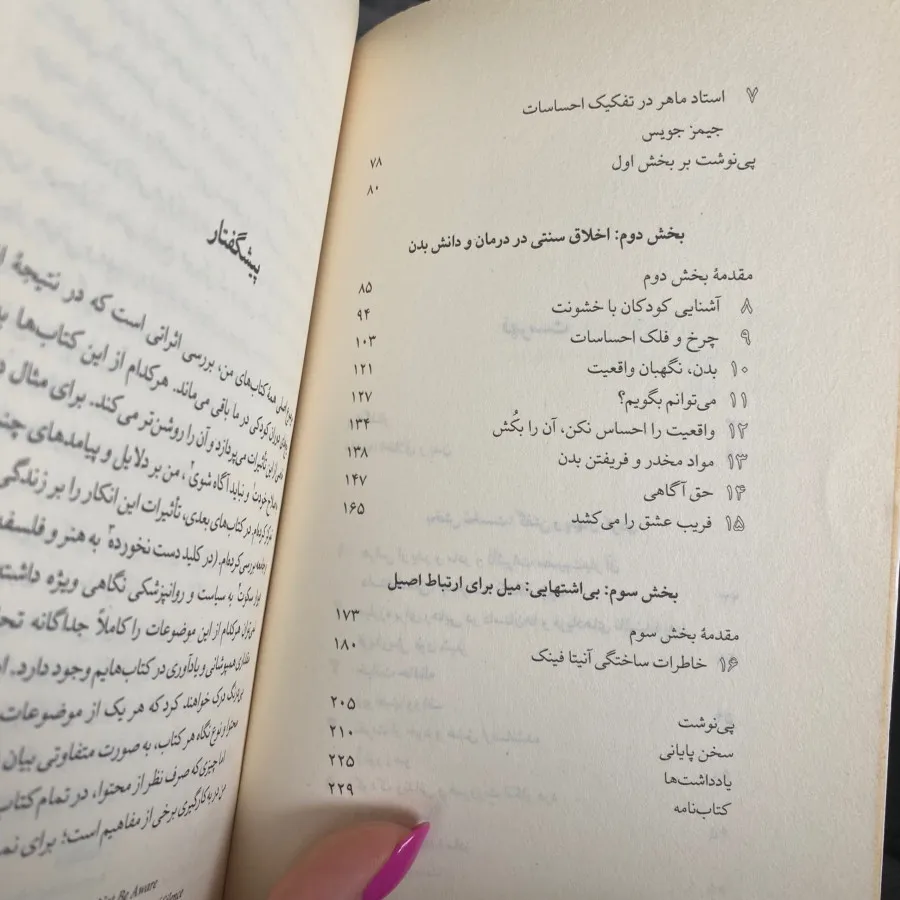 ۷ استاد ماهر در تفکیک احساسات
جیمز جویس ۷۸
پی‌نوشت بر بخش اول ۸۰
بخش دوم: اخلاق سنتی در درمان و دانش بدن
مقدمهٔ بخش دوم ۸۵
۸ آشنایی کودکان با خشونت ۹۴
۹ چرخ و فلک احساسات ۱۰۳
۱۰ بدن، نگهبان واقعیت ۱۲۱
۱۱ می‌توانم بگویم؟ ۱۲۷
۱۲ واقعیت را احساس نکن، آن را بکُش ۱۳۴
۱۳ مواد مخدر و فریفتن بدن ۱۳۸
۱۴ حق آگاهی ۱۴۷
۱۵ فریب عشق را می‌کشد ۱۶۵
بخش سوم: بی‌اشتهایی: میل برای ارتباط اصیل
مقدمهٔ بخش سوم ۱۷۳
۱۶ خاطرات ساختگی آنیتا فینک ۱۸۰
پی‌نوشت ۲۰۵
سخن پایانی ۲۱۰
یادداشت‌ها ۲۲۵
کتاب‌نامه ۲۲۹
پیشگفتار
اصلی همهٔ کتاب‌های من، بررسی اثراتی است که در نتیجهٔ
دوران کودکی در ما باقی می‌ماند. هرکدام از این کتاب‌ها
از این تأثیرات می‌پردازد و آن را روشن‌تر می‌کند. برای مثال
خودت و نباید آگاه شوی، من بر دلایل و پیامدهای
کرده‌ام. در کتاب‌های بعدی، تأثیرات این انکار را بر زندگی
بررسی کرده‌ام. (در کلید دست نخورده به هنر و فلسفه
سکوت به سیاست و روانپزشکی نگاهی ویژه داشته
هرکدام از این موضوعات را کاملاً جداگانه
همپوشانی و یادآوری در کتاب‌هایم وجود دارد.
درک خواهند کرد که هر یک از موضوعات
محتوا و نوع نگاه هر کتاب، به صورت متفاوتی بیان
اما چیزی که صرف نظر از محتوا، در تمام
من در به کارگیری برخی از مفاهیم است؛ برای
Be Aware